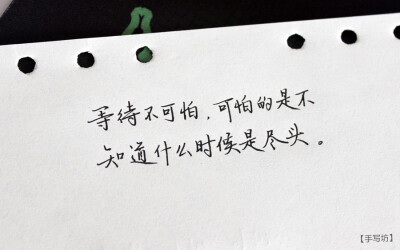 等待不可怕，可怕的是不
知道什么时候是尽头。
【手写坊】